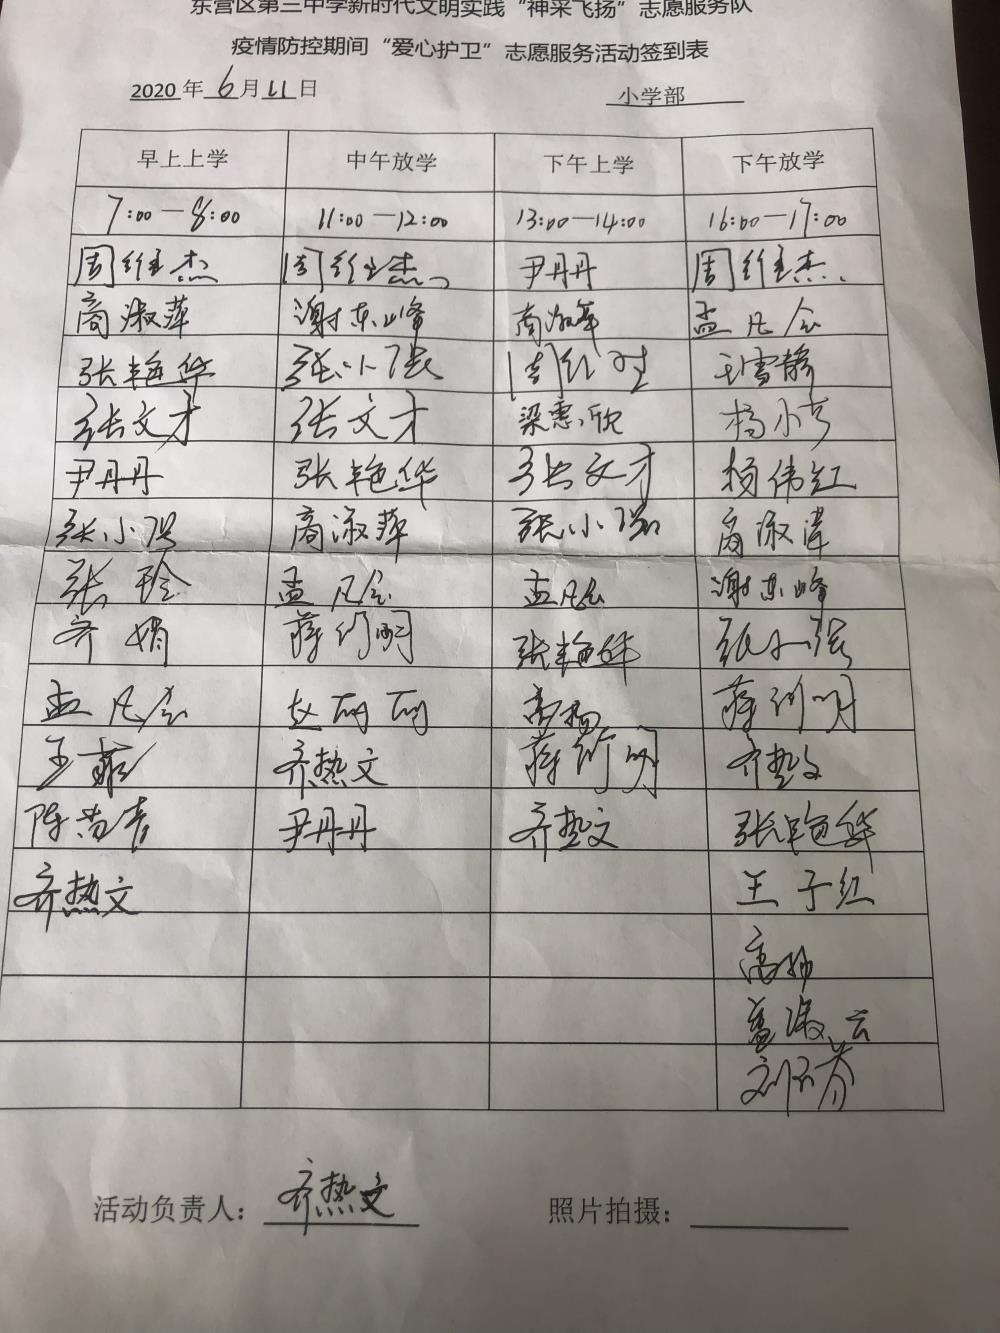 东营区第三中学新时代文明实践“神采飞扬”志愿服务队
疫情防控期间“爱心护卫”志愿服务活动签到表
2020 年 6 月 11 日 小学部
早上上学 中午放学 下午上学 下午放学
7:00—8:00 11:00—12:00 13:00—14:00 16:00—17:00
周维杰 周维杰 尹丹丹 周维杰
商淑萍 谢东峰 商淑萍 孟凡会
张艳华 张小强 王雪静
张文才 张文才 梁惠欣 杨小芳
尹丹丹 张艳华 张文才 杨伟红
张小强 商淑萍 张小强 商淑萍
张玲 孟凡会 孟凡会 谢东峰
齐娟 蒋行明 张艳华 张小强
孟凡会 赵丽丽 高扬 蒋行明
王菲 齐热文 蒋行明 齐热文
陈尚青 尹丹丹 齐热文 张艳华
齐热文 王子红
高扬
盖淑云
活动负责人： 齐热文 照片拍摄：